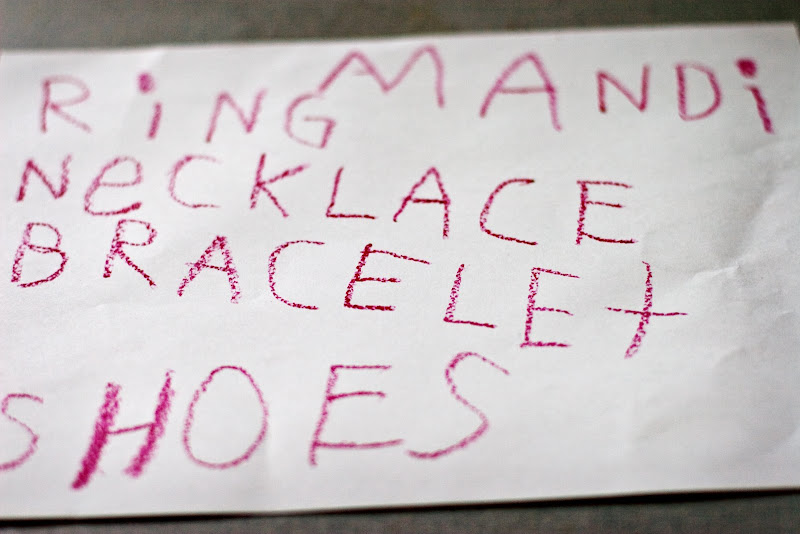 RiNG MANDi
NeCKLACE
BRACELEt
SHOES